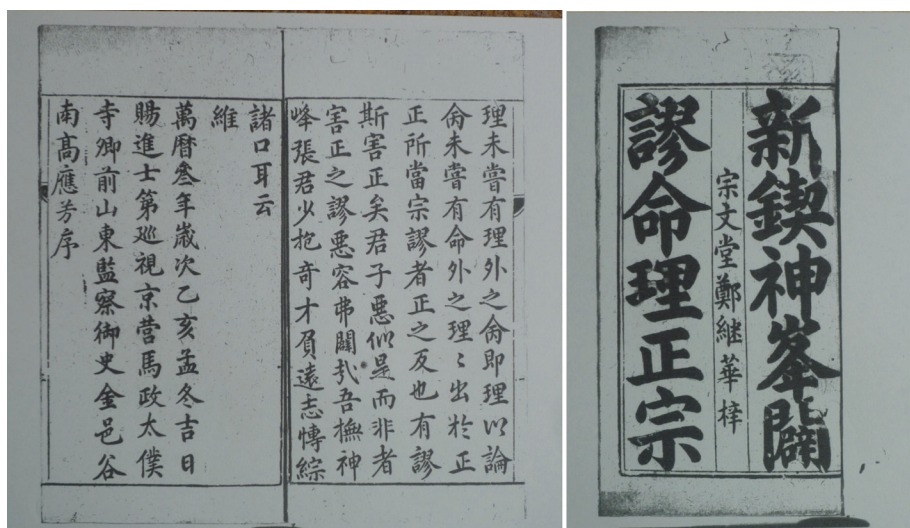 新鍥神峯闢
宗文堂鄭継華梓
謬命理正宗
理未嘗有理外之命即理以論
命未嘗有命外之理〻出於正
正所當宗謬者正之反也有謬
斯害正矣君子悪似是而非者
害正之謬悪容弗闢㢤吾撫神
峰張君少抱奇才負遠志博綜
諸口耳云
維
萬曆叁年歲次乙亥孟冬吉日
賜進士第廵視京营馬政太僕
寺卿前山東監察御史金邑谷
南高應芳序